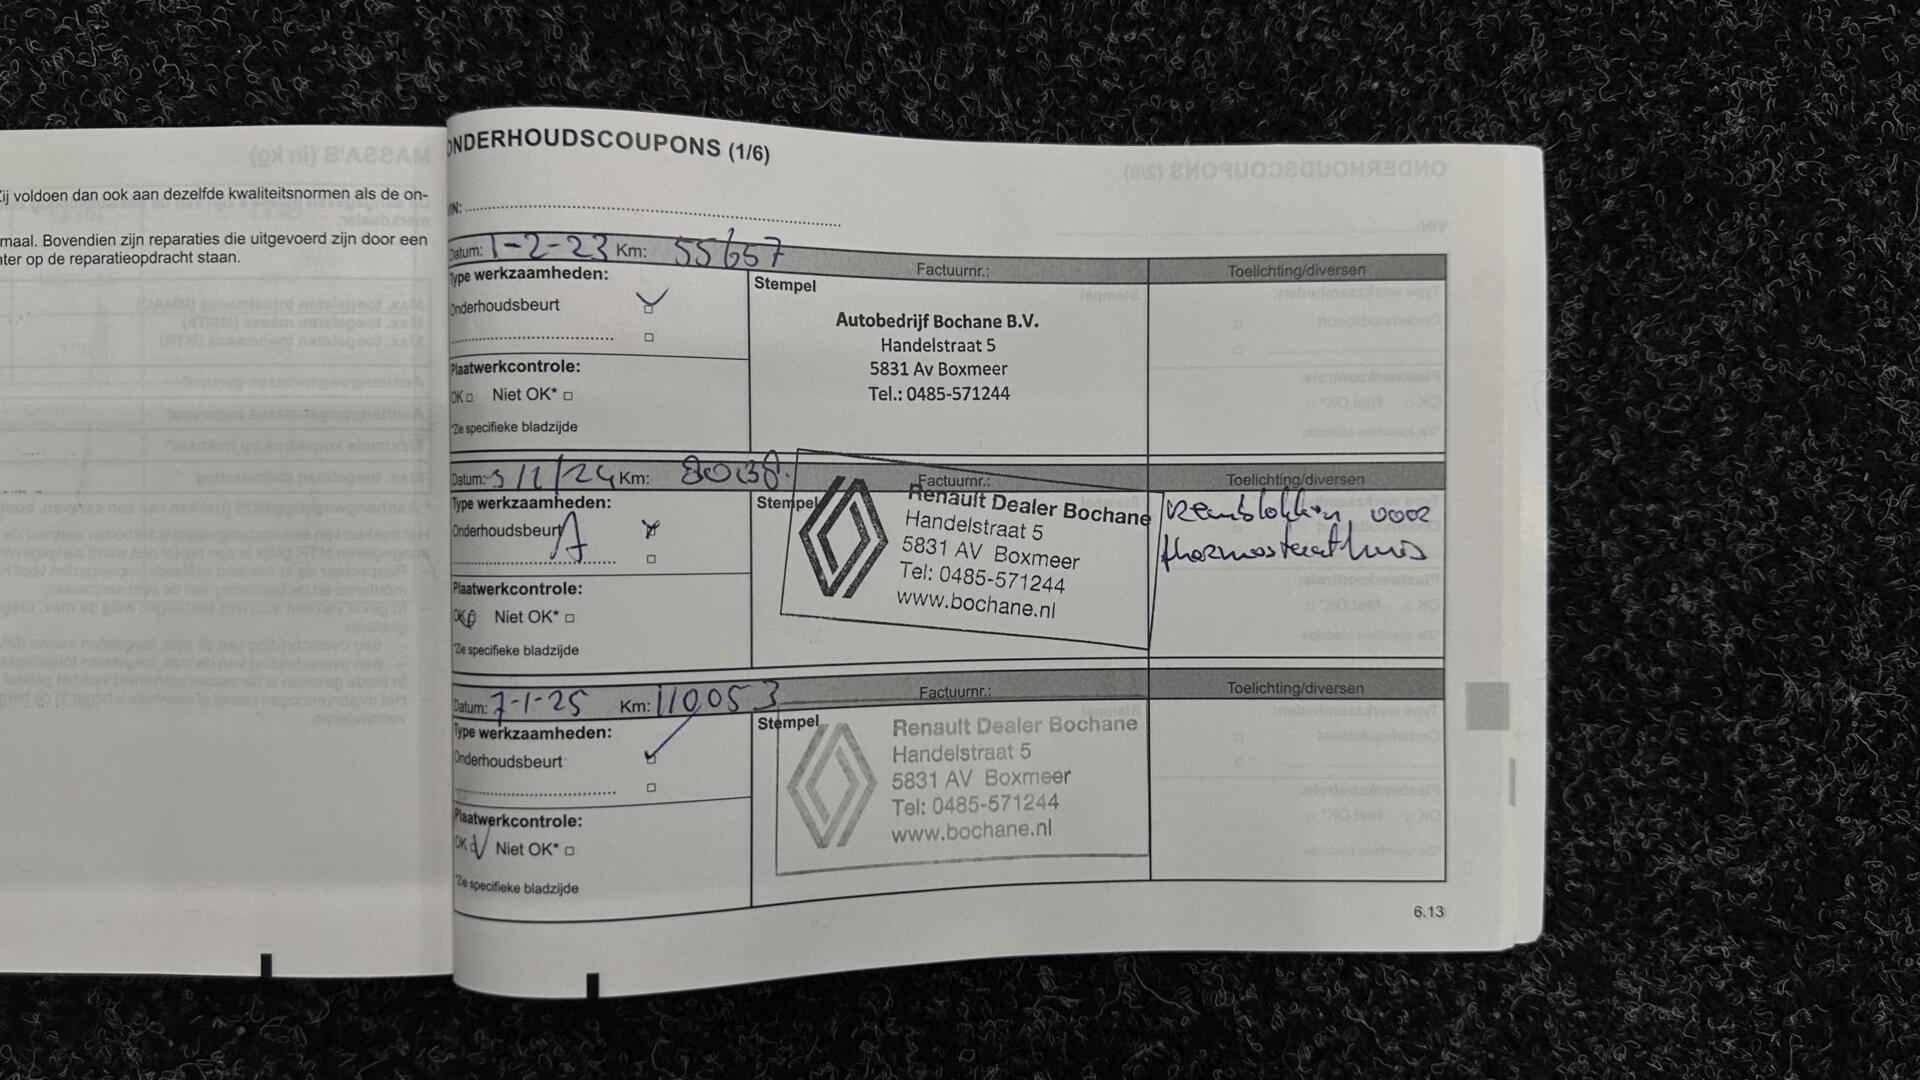 Zij voldoen dan ook aan dezelfde kwaliteitsnormen als de on-
maal. Bovendien zijn reparaties die uitgevoerd zijn door een
nter op de reparatieopdracht staan.
ONDERHOUDSCOUPONS (1/6)
VIN:
Datum: 1-2-23 Km: 55657 Factuurnr.: Toelichting/diversen
Type werkzaamheden: Stempel
Onderhoudsbeurt
Autobedrijf Bochane B.V.
Handelstraat 5
5831 Av Boxmeer
Tel.: 0485-571244
Plaatwerkcontrole:
OK Niet OK*
*Zie specifieke bladzijde
Datum: Km: Factuurnr.: Toelichting/diversen
Type werkzaamheden: Stempel
Onderhoudsbeurt A
Renault Dealer Bochane
Handelstraat 5
5831 AV Boxmeer
Tel: 0485-571244
www.bochane.nl
Remblokken voor
thermostaathuis
Plaatwerkcontrole:
OK Niet OK*
*Zie specifieke bladzijde
Datum: 7-1-25 Km: 110053 Factuurnr.: Toelichting/diversen
Type werkzaamheden: Stempel
Onderhoudsbeurt
Renault Dealer Bochane
Handelstraat 5
5831 AV Boxmeer
Tel: 0485-571244
www.bochane.nl
Plaatwerkcontrole:
OK Niet OK*
*Zie specifieke bladzijde
6.13